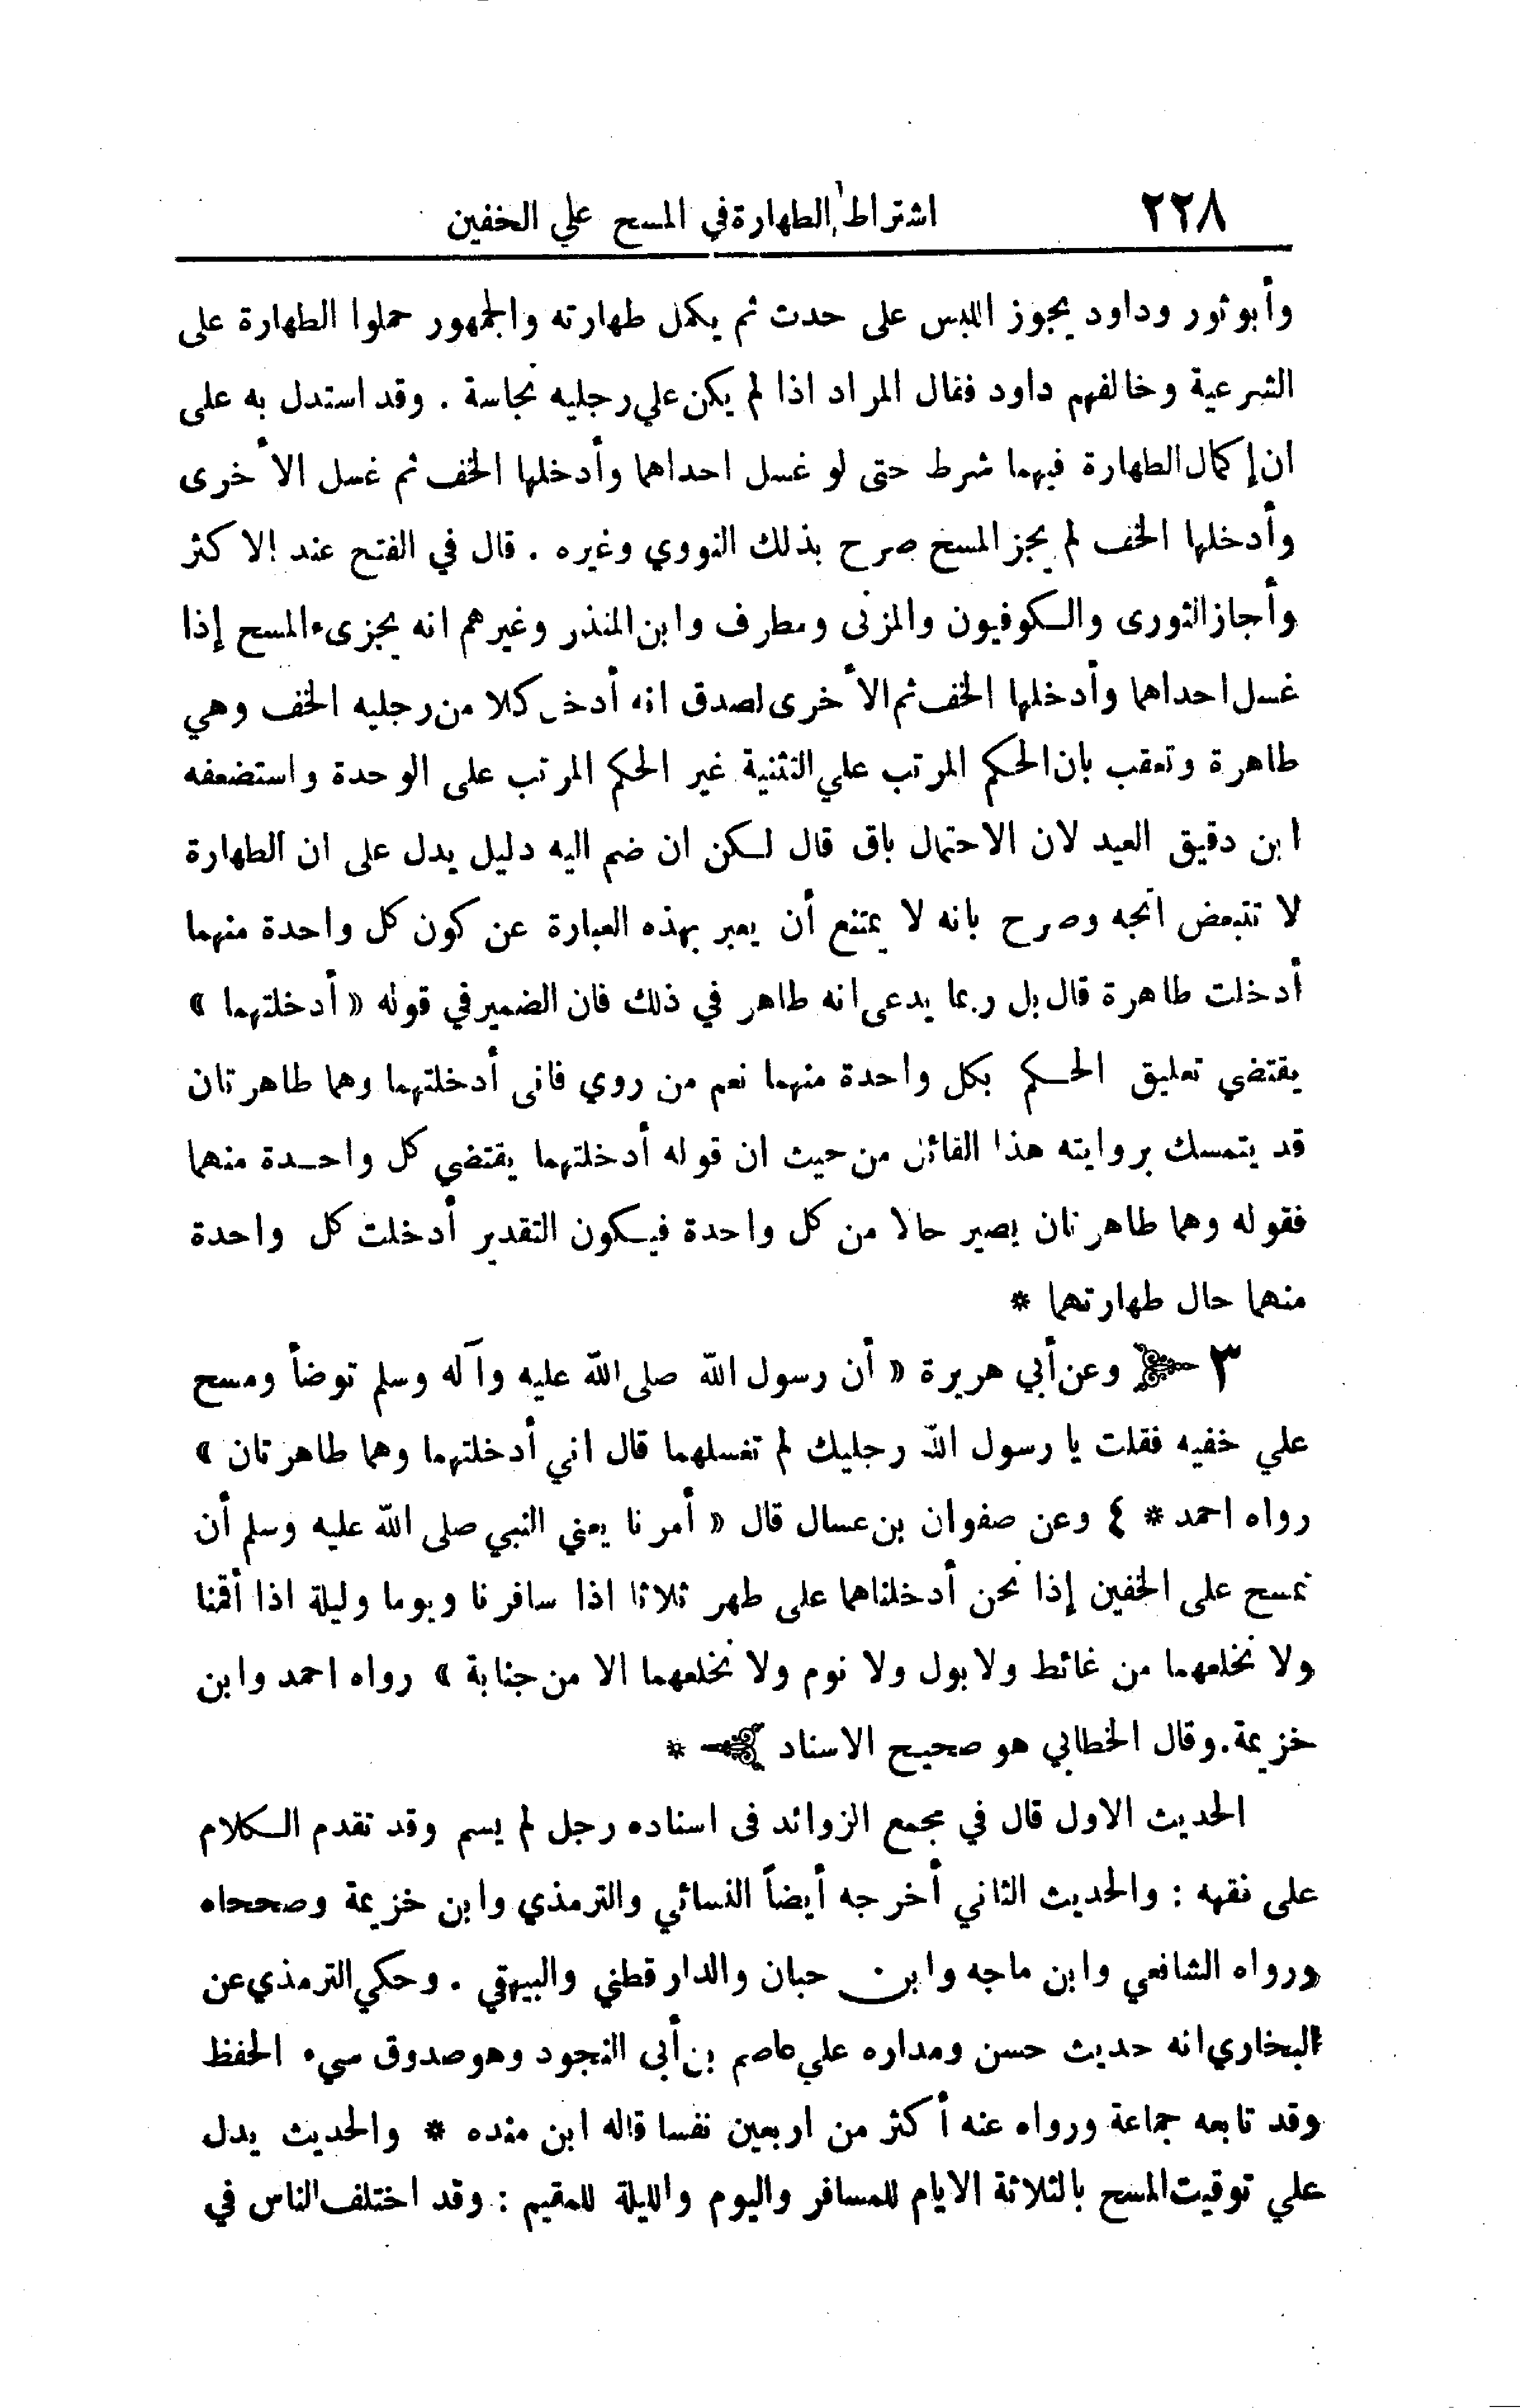 ٢٢٨ اشتراط الطهارة في المسح علي الخفين
وأبو ثور وداود يجوز اللبس على حدث ثم يكمل طهارته والجمهور حملوا الطهارة على
الشرعية وخالفهم داود فقال المراد اذا لم يكن علي رجليه نجاسة . وقد استدل به على
ان إكمال الطهارة فيهما شرط حتى لو غسل احداهما وأدخلها الخف ثم غسل الأخرى
وأدخلها الخف لم يجز المسح صرح بذلك النووي وغيره . قال في الفتح عند الاكثر
وأجاز الثورى والكوفيون والمزنى ومطرف وابن المنذر وغيرهم انه يجزىء المسح إذا
غسل احداهما وأدخلها الخف ثم الأخرى لصدق انه أدخل كلا من رجليه الخف وهي
طاهرة وتعقب بان الحكم المرتب علي التثنية غير الحكم المرتب على الوحدة واستضعفه
ابن دقيق العيد لان الاحتمال باق قال لكن ان ضم اليه دليل يدل على ان الطهارة
لا تتبعض اتجه وصرح بانه لا يمتنع أن يعبر بهذه العبارة عن كون كل واحدة منهما
أدخلت طاهرة قال بل ربما يدعى انه ظاهر في ذلك فان الضمير في قوله « أدخلتهما »
يقتضي تعليق الحكم بكل واحدة منهما نعم من روي فانى أدخلتهما وهما طاهرتان
قد يتمسك بروايته هذا القائل من حيث ان قوله أدخلتهما يقتضي كل واحدة منهما
فقوله وهما طاهرتان يصير حالا من كل واحدة فيكون التقدير أدخلت كل واحدة
منهما حال طهارتهما *
٣ وعن أبي هريرة « أن رسول الله صلى الله عليه وآله وسلم توضأ ومسح
علي خفيه فقلت يا رسول الله رجليك لم تغسلهما قال اني أدخلتهما وهما طاهرتان »
رواه احمد * ٤ وعن صفوان بن عسال قال « أمرنا يعني النبي صلى الله عليه وسلم أن
نمسح على الخفين إذا نحن أدخلناهما على طهر ثلاثا اذا سافرنا ويوما وليلة اذا أقمنا
ولا نخلعهما من غائط ولا بول ولا نوم ولا نخلعهما الا من جنابة » رواه احمد وابن
خزيمة. وقال الخطابي هو صحيح الاسناد *
الحديث الاول قال في مجمع الزوائد فى اسناده رجل لم يسم وقد تقدم الكلام
على فقهه : والحديث الثاني أخرجه أيضاً النسائي والترمذي وابن خزيمة وصححاه
ورواه الشافعي وابن ماجه وابن حبان والدارقطني والبيهقي . وحكي الترمذي عن
البخاري انه حديث حسن ومداره علي عاصم بن أبى النجود وهو صدوق سيء الحفظ
وقد تابعه جماعة ورواه عنه أكثر من اربعين نفسا قاله ابن منده * والحديث يدل
علي توقيت المسح بالثلاثة الايام للمسافر واليوم والليلة للمقيم : وقد اختلف الناس في